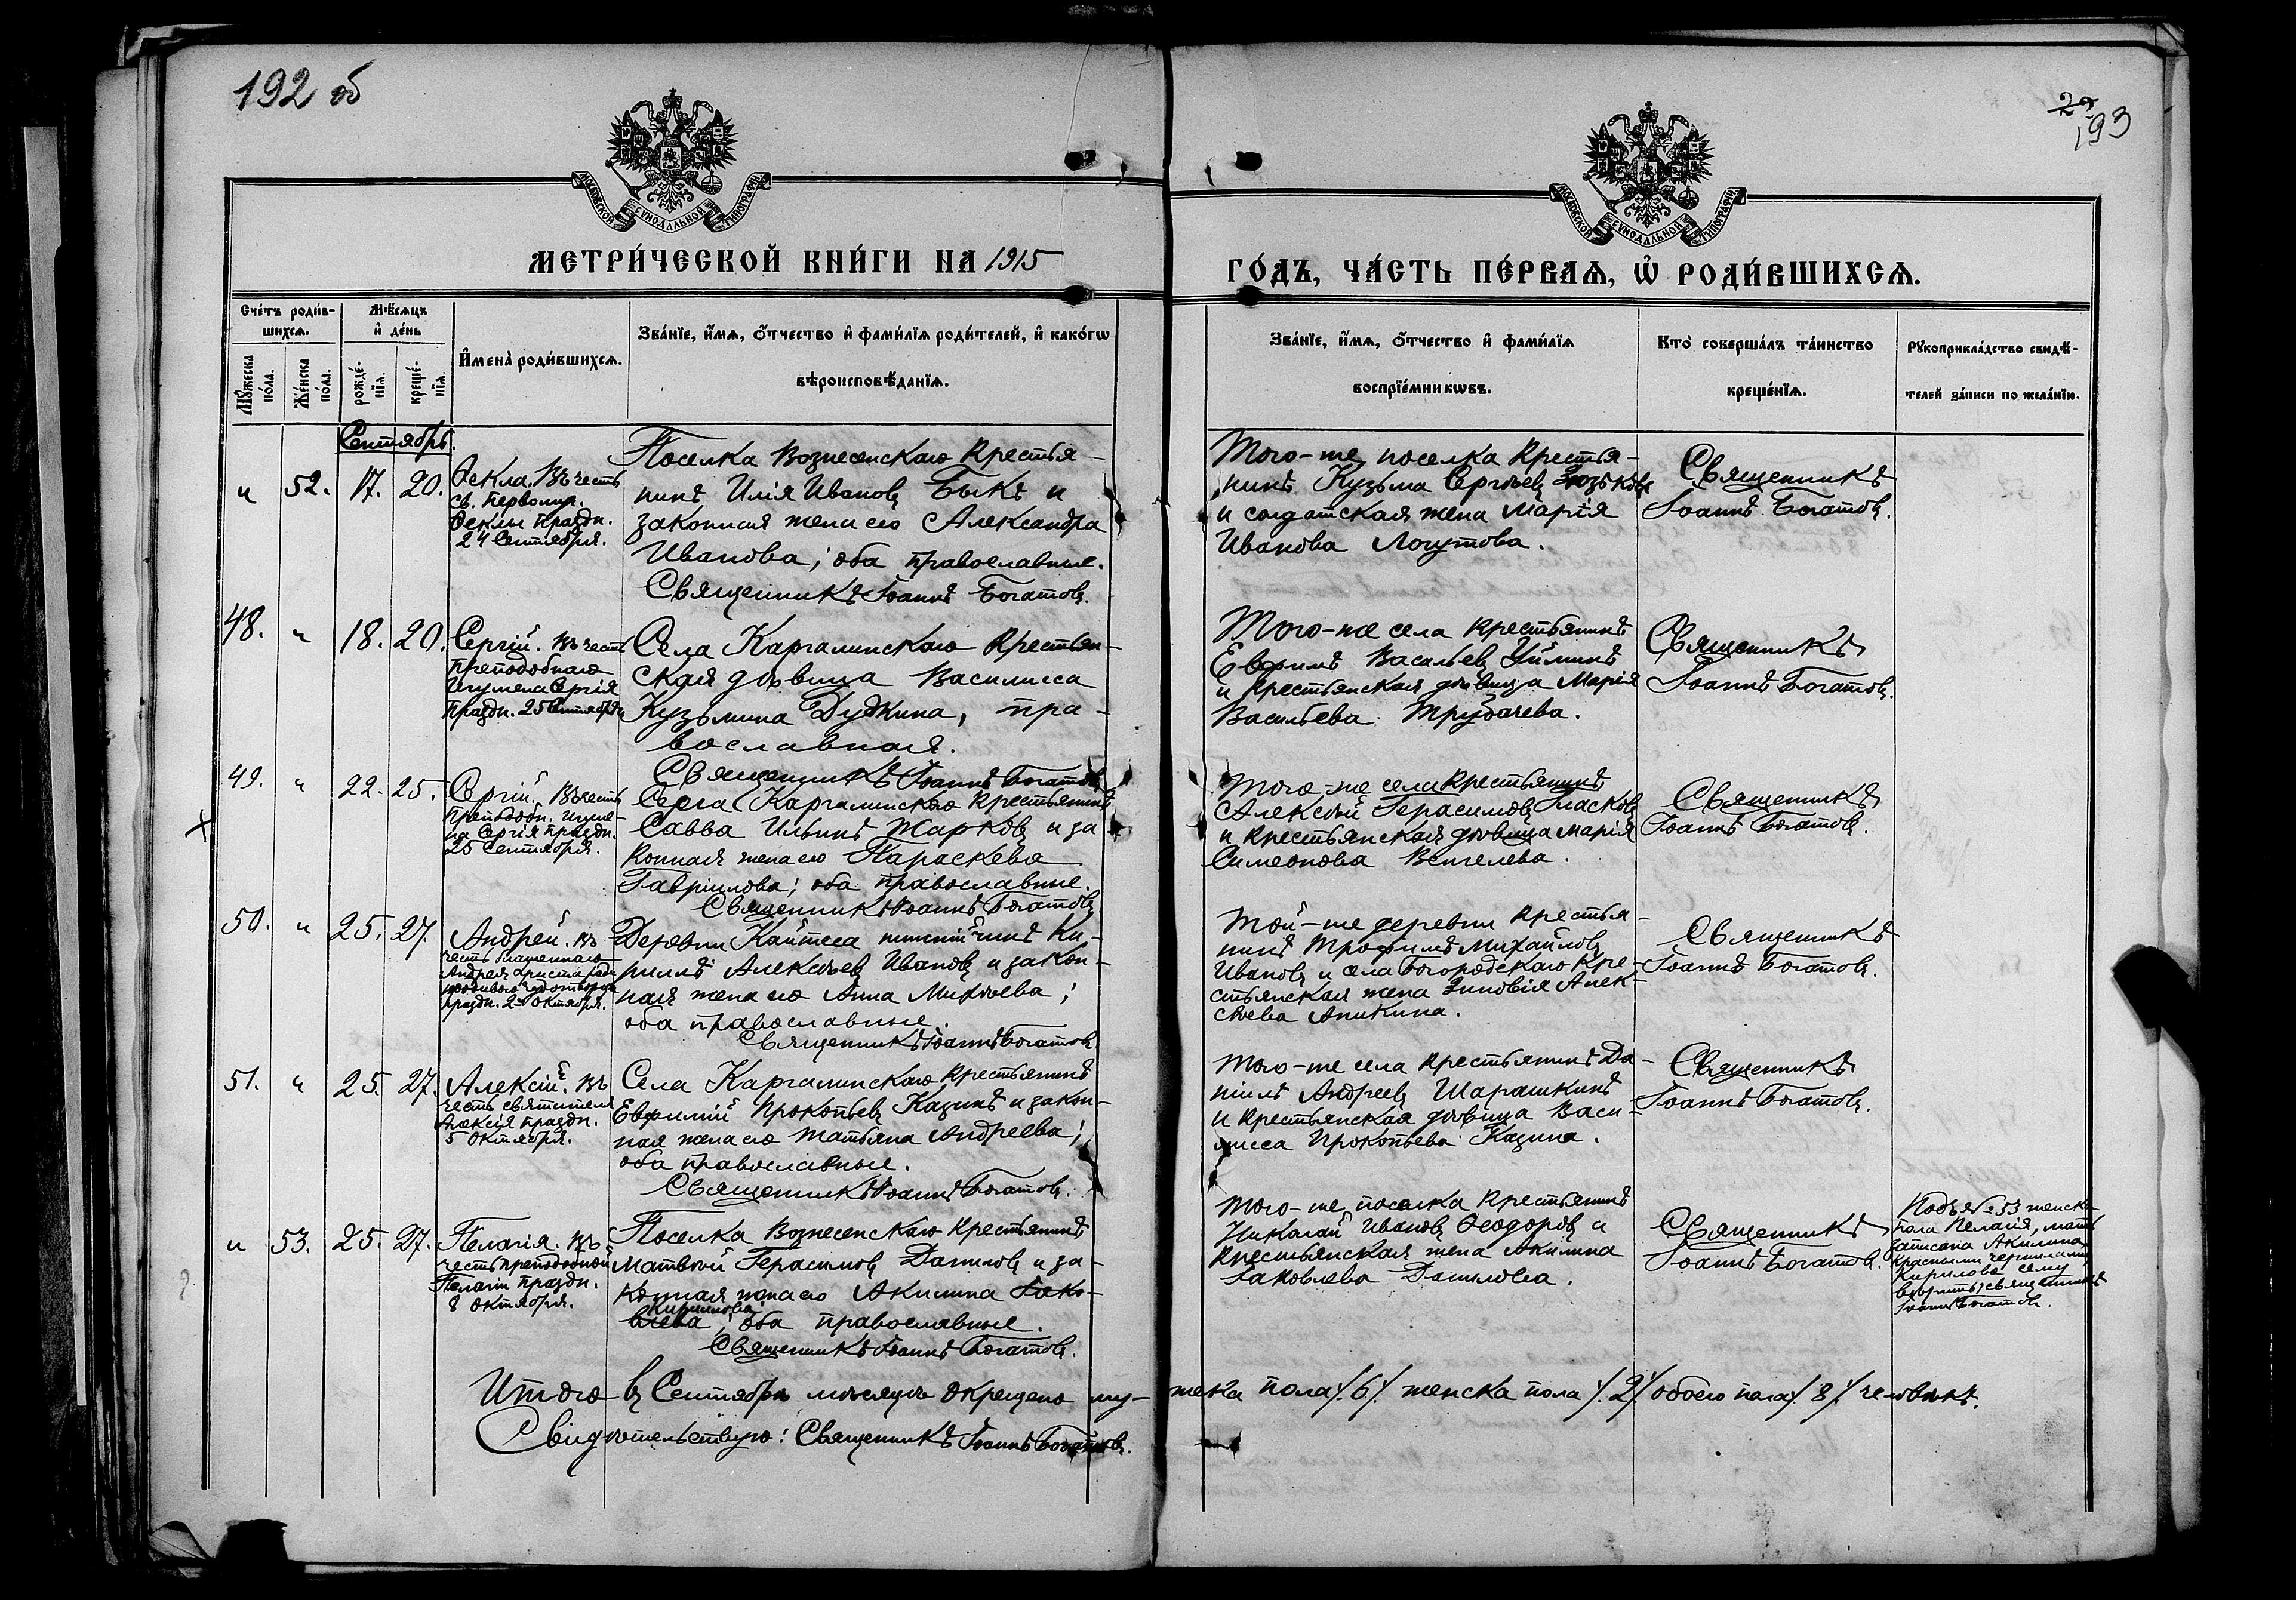 192 об
29
193
МОСКОВСКОЙ СѴНОДАЛЬНОЙ ТИПОГРАФІИ
МОСКОВСКОЙ СѴНОДАЛЬНОЙ ТИПОГРАФІИ
МЕТРИ́ЧЕСКОЙ КНИ́ГИ НА 1915
ГО́ДЪ, ЧА́СТЬ ПЕ́РВАѦ, Ѡ҆ РОДИ́ВШИХСѦ.
Сче́тъ роди́в-
шихсѧ.
Мѣ́сѧцъ
и҆ де́нь
Мꙋ́жеска
по́ла.
Же́нска
по́ла.
рожде́-
нїѧ.
креще́-
нїѧ.
И҆мена̀ роди́вшихсѧ.
Зва́нїе, и҆́мѧ, ѻ҆́тчество и҆ фами́лїѧ роди́телей, и҆ како́гѡ
вѣроисповѣ́данїѧ.
Зва́нїе, и҆́мѧ, ѻ҆́тчество и҆ фами́лїѧ
воспрїе́мникѡвъ.
Кто̀ соверша́лъ та́инство
креще́нїѧ.
Рꙋкоприкла́дство свидѣ́-
телей за́писи по жела́нїю.
Сентябрь.
и 52. 17. 20.
Ѳекла. Въ честь
св. первомуч.
Ѳеклы праздн.
24 Сентября.
Поселка Вознесенскаго Крестья-
нинъ Илія Ивановъ Быкъ и
законная жена его Александра
Иванова; оба православные.
Священникъ Іоаннъ Богатовъ.
Того-же поселка Крестья-
нинъ Кузьма Сергѣевъ
и солдатская жена Марія
Иванова Логутова.
Священникъ
Іоаннъ Богатовъ.
48. " 18. 20.
Сергій. Въ честь
преподобнаго
Игумена Сергія
праздн. 25 Сентября
Села Каргалинскаго Крестьян-
ская дѣвица Василисса
Кузьмина Дудкина, пра-
вославная.
Священникъ Іоаннъ Богатовъ
Того-же села Крестьянинъ
Евфимъ Васильевъ Уйминъ
и Крестьянская дѣвица Марія
Васильева Трубачева.
Священникъ
Іоаннъ Богатовъ.
49. " 22. 25.
Сергій. Въ честь
Преподобн. Игуме-
на Сергія праздн.
25 Сентября.
Села Каргалинскаго Крестьянинъ
Савва Ильинъ Жарковъ и за
конная жена его Параскева
Гавріилова; оба православные.
Священникъ Іоаннъ Богатовъ
Того-же села Крестьянинъ
Алексѣй Герасимовъ Гласковъ
и Крестьянская дѣвица Марія
Симеонова Вентелева.
Священникъ
Іоаннъ Богатовъ.
50. " 25. 27.
Андрей. Въ
честь блаженнаго
Андрея Христа ради
праздн. 2го Октября.
Деревни Кайтеса Ки-
риллъ Алексѣевъ Ивановъ и закон-
ная жена его Анна Михѣева;
оба православные.
Священникъ Іоаннъ Богатовъ
Той-же деревни Крестья-
нинъ Трофимъ Михайловъ
Ивановъ и села Богородскаго Кре-
стьянская жена Зиновія Алек-
сѣева Аникина.
Священникъ
Іоаннъ Богатовъ.
51. " 25. 27.
Алексій. Въ
честь святителя
Алексія праздн.
5 Октября.
Села Каргалинскаго Крестьянинъ
Евфимій Прокопьевъ Казинъ и закон-
ная жена его Татьяна Андреева;
оба православные.
Священникъ Іоаннъ Богатовъ.
Того-же села Крестьянинъ Да-
ніилъ Андреевъ Шарашкинъ
и Крестьянская дѣвица Васи-
лисса Прокопьева Казина.
Священникъ
Іоаннъ Богатовъ.
и 53. 25. 27.
Пелагія. Въ
честь преподобной
Пелагіи праздн.
8 Октября.
Поселка Вознесенскаго Крестьянинъ
Матвѣй Герасимовъ Даниловъ и за-
конная жена его Акилина Іако-
Кирилова
влева; оба православные.
Священникъ Іоаннъ Богатовъ.
Того-же поселка Крестьянинъ
Николай Ивановъ Ѳеодоровъ и
Крестьянская жена Акилина
Іаковлева Данилова.
Священникъ
Іоаннъ Богатовъ.
Подъ № 53 женска
пола Пелагія, мать
записана Акилина
красными чернилами
Кирилова сему
вѣрить; священникъ
Іоаннъ Богатовъ.
Итого въ Сентябрѣ мѣсяцѣ окрещено му- жска пола /. 6 /. женска пола /. 2 /. обоего пола /. 8 /. человѣкъ.
Свидѣтельствую: Священникъ Іоаннъ Богатовъ.